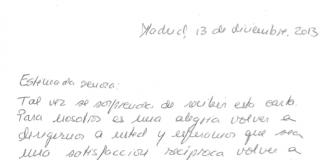 Madrid, 13 de diciembre, 2013
Estimada señora:
Tal vez se sorprenda de recibir esta carta.
Para nosotros es una alegría volver a
dirigirnos a usted y esperamos que sea
una satisfacción recíproca volver a